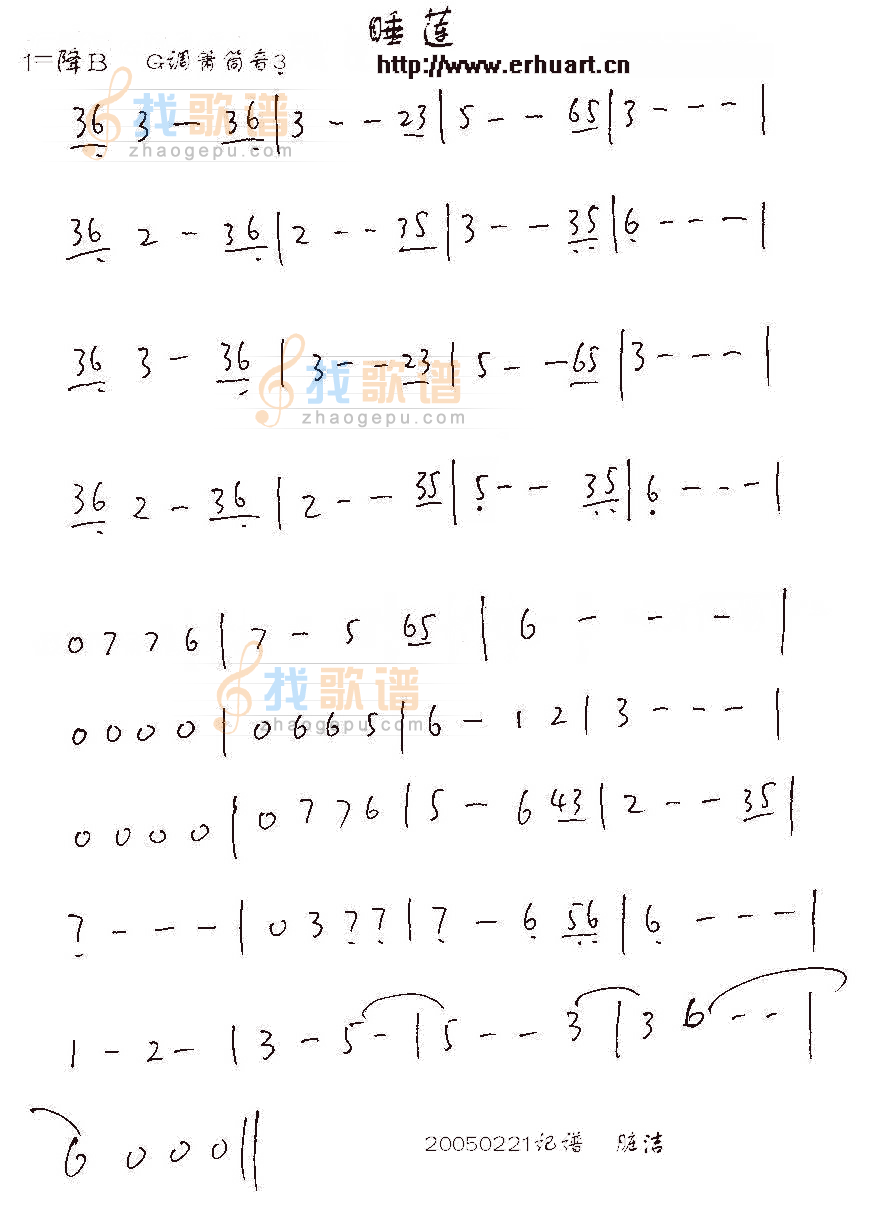 睡莲
1=降B G调箫筒音3
http://www.erhuart.cn
36 3 - 36 | 3 - - 23 | 5 - - 65 | 3 - - - |
找歌谱
zhaogepu.com
36 2 - 36 | 2 - - 35 | 3 - - 35 | 6 - - - |
36 3 - 36 | 3 - - 23 | 5 - - 65 | 3 - - - |
找歌谱
zhaogepu.com
36 2 - 36 | 2 - - 35 | 5 - - 35 | 6 - - - |
0 7 7 6 | 7 - 5 65 | 6 - - - |
找歌谱
zhaogepu.com
0 0 0 0 | 0 6 6 5 | 6 - 1 2 | 3 - - - |
0 0 0 0 | 0 7 7 6 | 5 - 6 43 | 2 - - 35 |
7 - - - | 0 3 7 7 | 7 - 6 56 | 6 - - - |
1 - 2 - | 3 - 5 - | 5 - - 3 | 3 6 - - |
6 0 0 0 ||
20050221记谱 脏洁